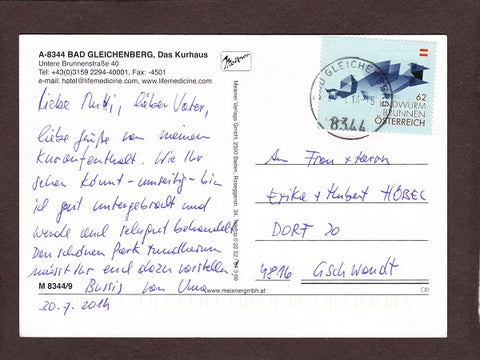 A-8344 BAD GLEICHENBERG, Das Kurhaus
Untere Brunnenstraße 40
Tel: +43(0)3159 2294-40001, Fax: -4501
e-mail: hotel@lifemedicine.com, www.lifemedicine.com
Meixner
Liebe Mutti, lieber Vater,
liebe Grüße von meinem
Kuraufenthalt. Wie Ihr
sehen könnt - umseitig - bin
ich gut untergebracht und
werde auch sehr gut behandelt.
Den schönen Park rundherum
müsst Ihr euch dazu vorstellen
Bussis von
20.7.2014
M 8344/9
Meixner Verlags GmbH, 2500 Baden, Roseggerstr. 34,
www.meixnergmbh.at
BAD GLEICHENBERG
8344
62
LINDWURM
BRUNNEN
ÖSTERREICH
An Frau + Herrn
Erika + Hubert HÖBEL
DORF 20
4816 Gschwandt